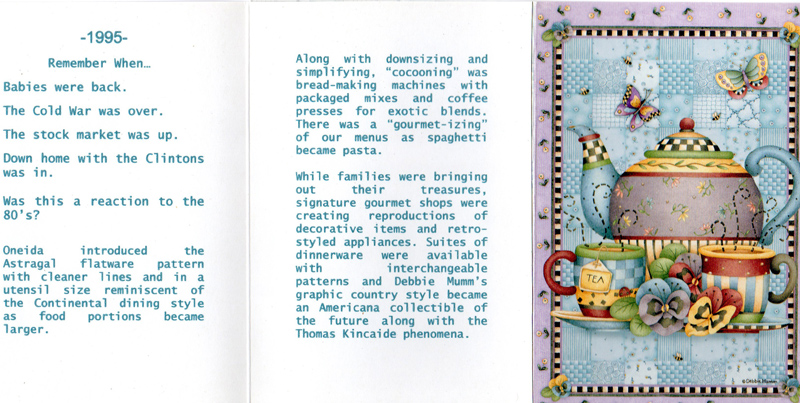 -1995-
Remember When…
Babies were back.
The Cold War was over.
The stock market was up.
Down home with the Clintons
was in.
Was this a reaction to the
80's?
Oneida introduced the
Astragal flatware pattern
with cleaner lines and in a
utensil size reminiscent of
the Continental dining style
as food portions became
larger.
Along with downsizing and
simplifying, "cocooning" was
bread-making machines with
packaged mixes and coffee
presses for exotic blends.
There was a "gourmet-izing"
of our menus as spaghetti
became pasta.
While families were bringing
out their treasures,
signature gourmet shops were
creating reproductions of
decorative items and retro-
styled appliances. Suites of
dinnerware were available
with interchangeable
patterns and Debbie Mumm's
graphic country style became
an Americana collectible of
the future along with the
Thomas Kincaide phenomena.
TEA
©Debbie Mumm